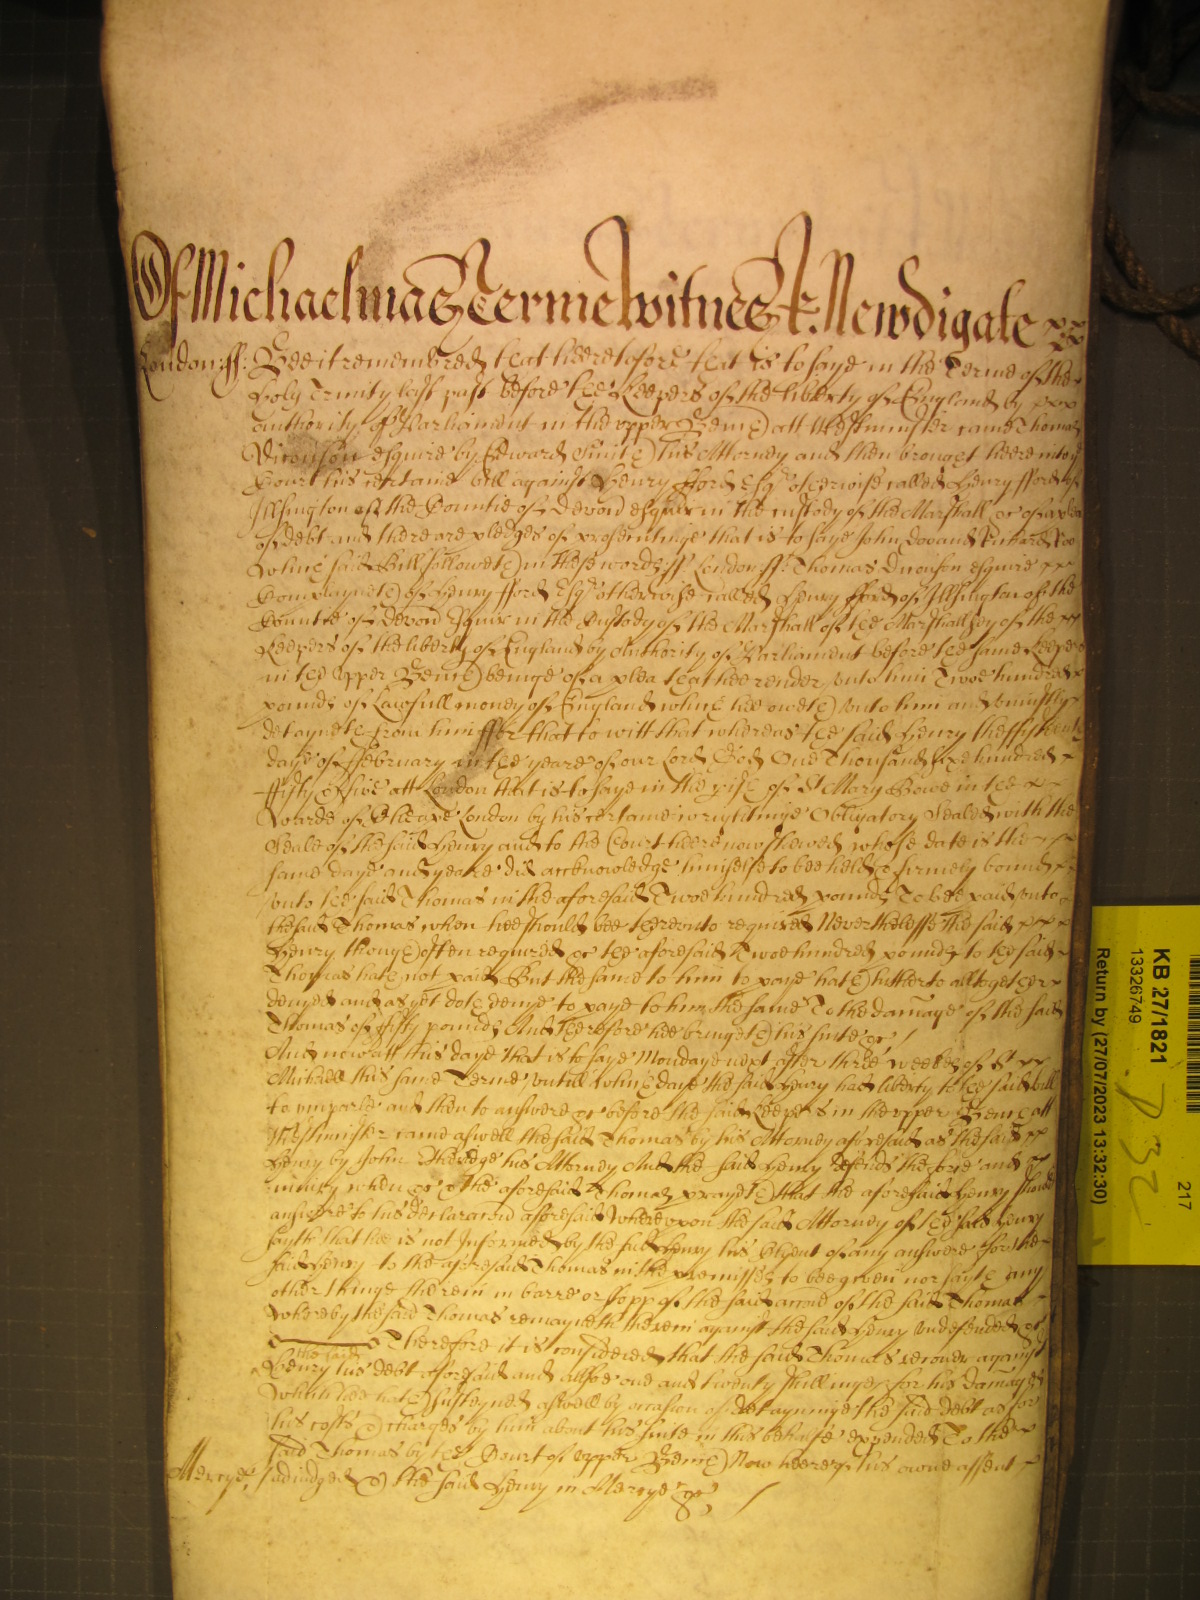 Of Michaelmas Terme Witnes R: Newdigate
London: ss: Bee it remembred that heeretofore that is to saye in the Terme of the
Holy Trinity last past before the Keepers of the liberty of England by
authority of Parliament in the vpper Bench att Westminster came Thomas
esquire by Edward his Attorney and then brought heere into the
Court his certaine bill against Henry fford Esqr otherwise called Henry fford of
Illsington of the Countie of Devon esquire in the custody of the Marshall &c of a plea
of debt and there are pledges of prosecutinge that is to saye John Doo and Richard Roo
Which said Bill followeth in these words ss London: ss: Thomas esquire
Complayneth of Henry fford Esqr otherwise called Henry fford of Illsington of the
Countie of Devon Esquire in the Custody of the Marshall of the Marshallsey of the
Keepers of the liberty of England by Authority of Parliament before the same Keepers
in the vpper Bench beinge of a plea that hee render vnto him Twoe hundred
pounds of Lawfull money of England which hee oweth vnto him and vniustly
detayneth from him ffor that to witt that whereas the said Henry the
daye of ffebruary in the yeare of our Lord God One Thousand sixe hundred
ffifty & ffive att London that is to saye in the pish of St Mary Bowe in the
Warde of Cheape London by his certaine wrightinge Obligatory Sealed with the
Seale of the said Henry and to the Court heere now shewed whose date is the
same daye and yeare did acknowledge himselfe to bee held & firmely bound
vnto the said Thomas in the aforesaid Twoe hundred pounds To bee paid vnto
the said Thomas when hee should bee therevnto required Neverthelesse the said
Henry though often required &c the aforesaid Twoe hundred pounds to the said
Thomas hath not paid But the same to him to paye hath hitherto alltogether
denyed and as yet doth denye to paye to him the same To the damage of the said
Thomas of ffifty pounds And therefore hee bringeth his suite &c
And now att this daye that is to saye Mondaye next after three weekes of St
Michaell this same Terme vntill which daye the said Henry had liberty to the said bill
to imparle and then to answere &c before the said Keepers in the vpper Bench att
Westminster came aswell the said Thomas by his Attorney aforesaid as the said
Henry by John his Attorney And the said Henry defends the force and
iniury when &c & the aforesaid Thomas prayeth that the aforesaid Henry should
answere to his declaracon aforesaid Wherevpon the said Attorney of the said Henry
sayth that hee is not Informed by the said Henry his Clyent of any answere for the
said Henry to the aforesaid Thomas in the premisses to bee given nor sayth any
other thinge therein in barre or stopp of the said accon of the said Thomas
Whereby the said Thomas remayneth therein against the said Henry vndefended &c
Therefore it is considered that the said Thomas recover against
the said
Henry his debt aforesaid and allsoe one and twenty shillinges for his damages
which hee hath susteyned aswell by occasion of detayninge the said debt as for
his costs & charges by him about his suite in this behalfe expended To the
said Thomas by the Court of vpper Bench Now heere of his owne assent
Mercye. adiudged & the said Henry in Mercye &c
KB 27/1821
13326749
217
Return by (27/07/2023 13:32:30)